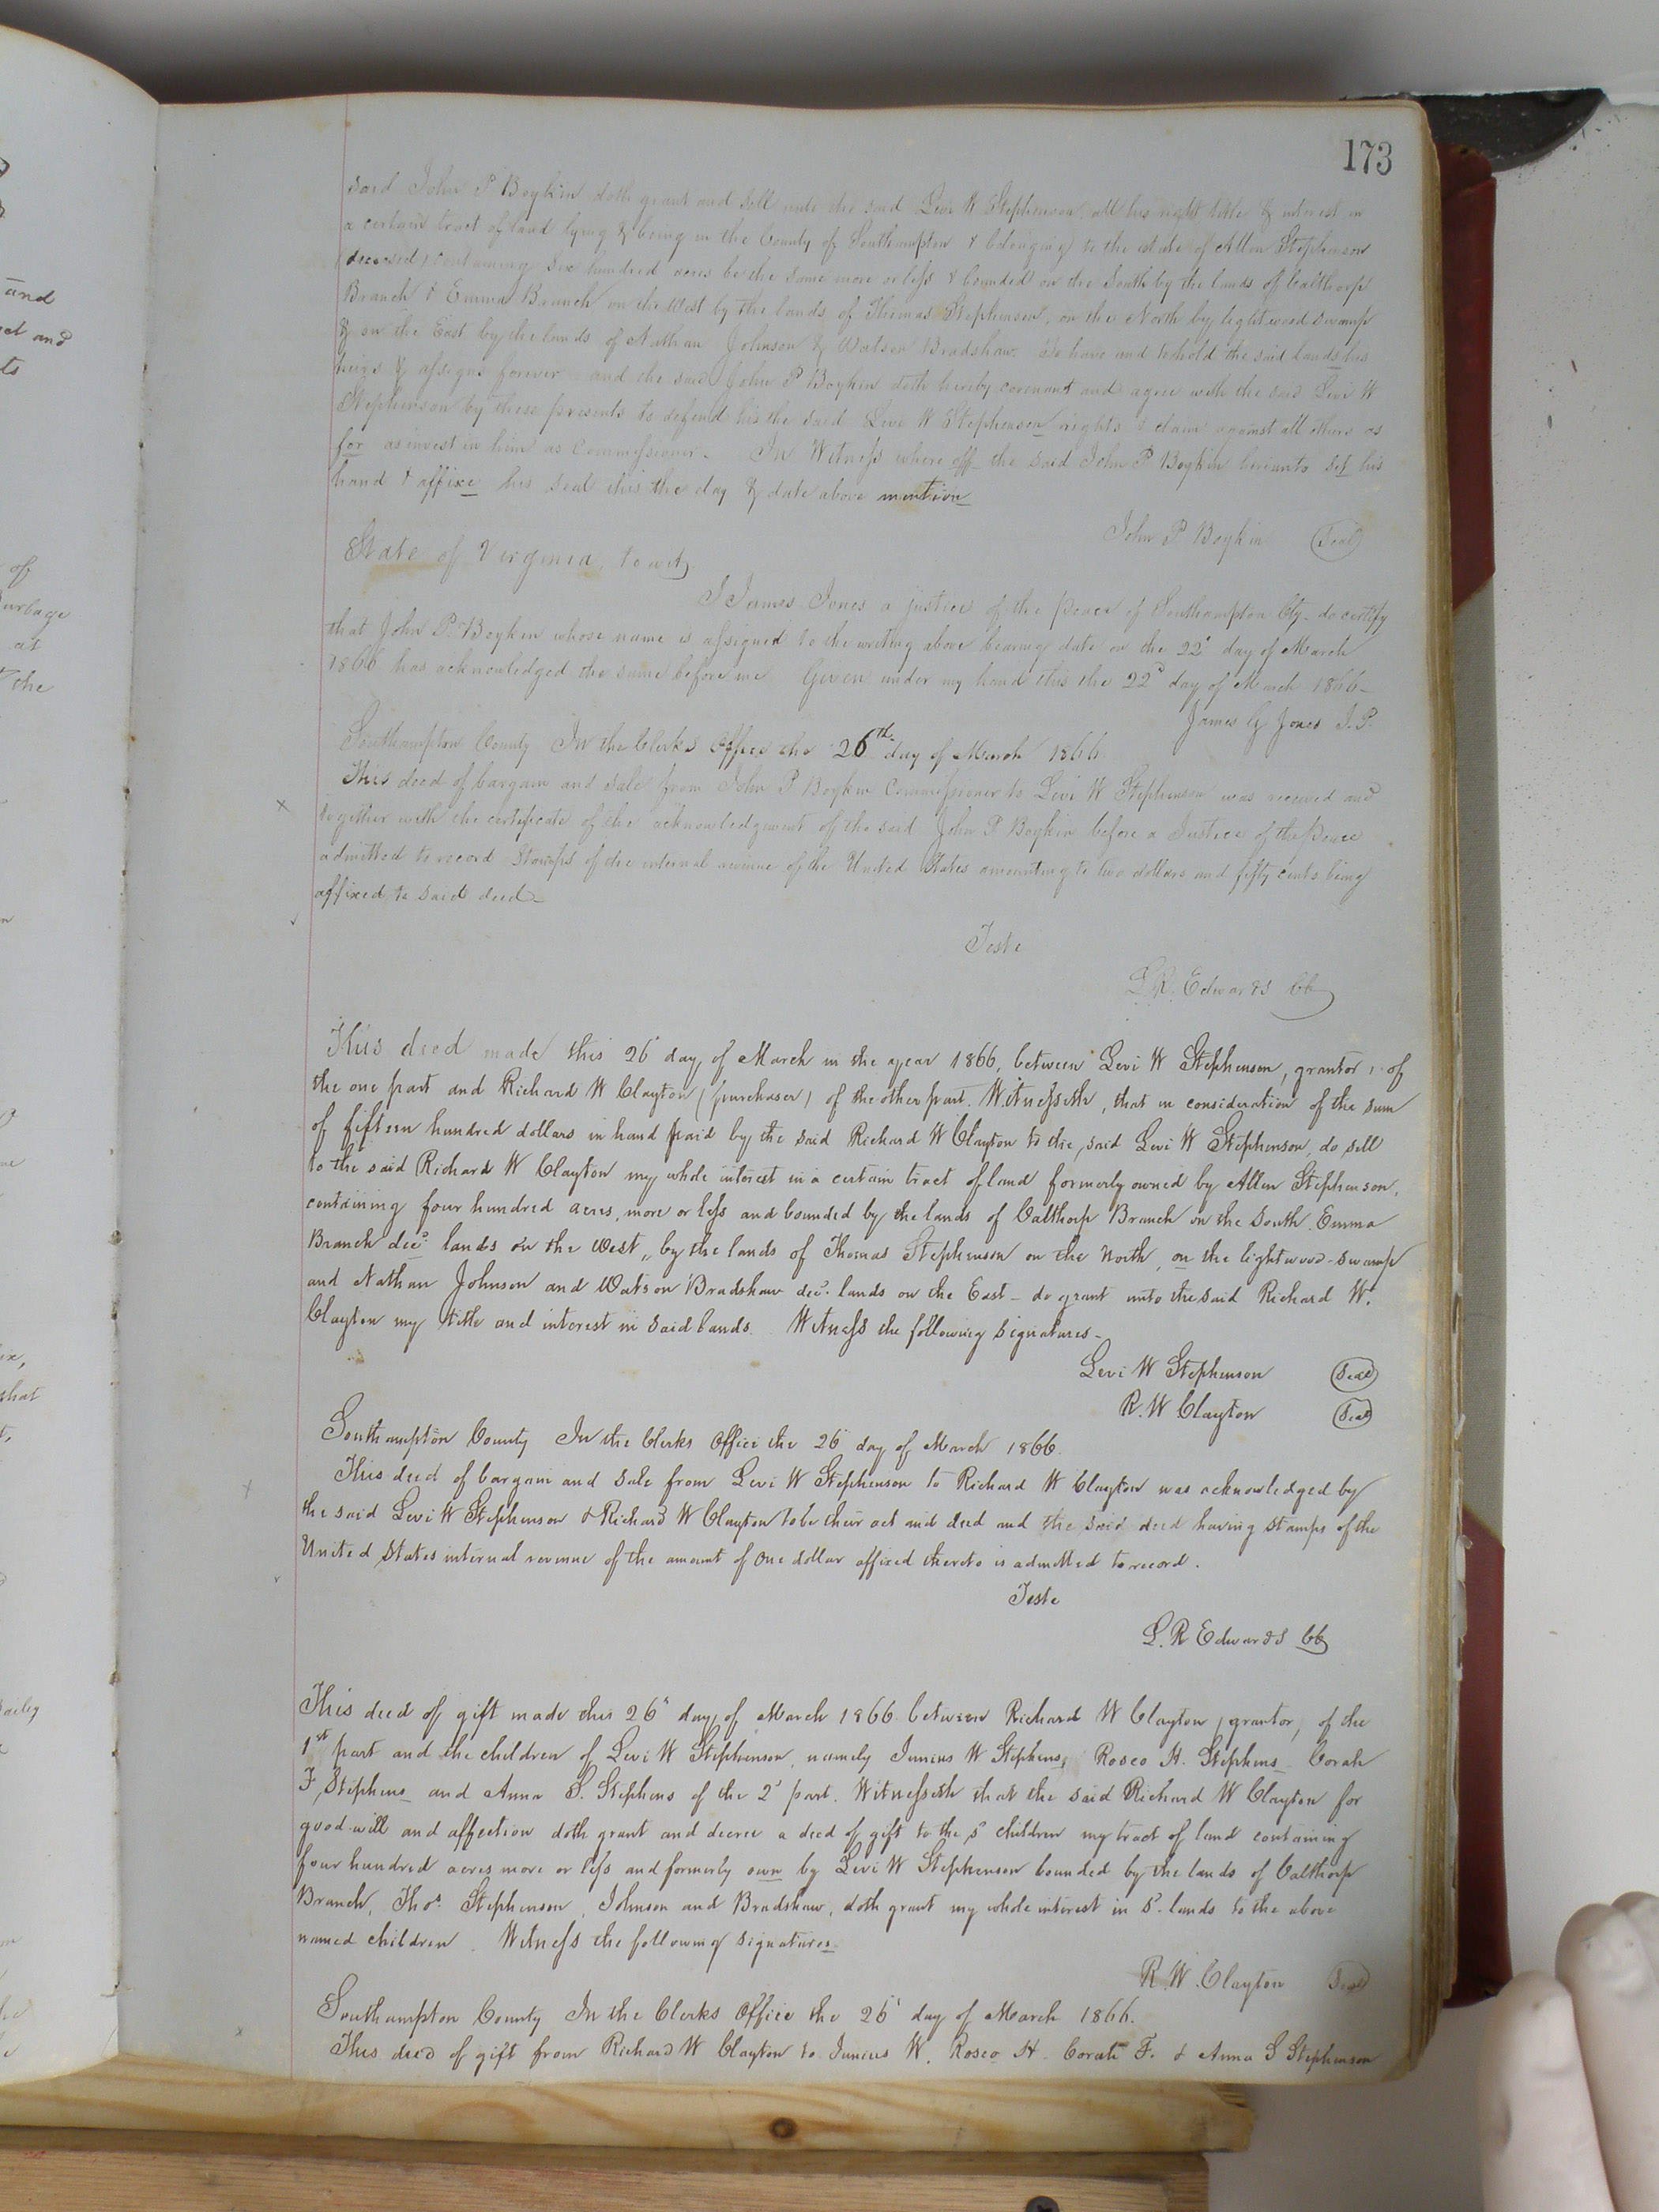 173
said John P Boykin doth grant and sell unto the said Levi W Stephenson, all his right title & interest in
a certain tract of land lying & being in the County of Southampton & belonging to the estate of Allen Stephenson
deceased, containing six hundred acres be the same more or less & bounded on the South by the lands of Calthorp
Branch & Emma Branch, on the West by the lands of Thomas Stephenson, on the North by lightwood Swamp
& on the East by the lands of Nathan Johnson & Watson Bradshaw. To have and to hold the said lands his
heirs & assigns forever and the said John P Boykin doth hereby covenant and agree with the said Levi W
Stephenson by these presents to defend his the said Levi W Stephenson rights & claim against all others as
for as invest in him as Commissioner. In Witness where off the said John P Boykin hereunto set his
hand & affixe his seal this the day & date above mention
John P Boykin (Seal)
State of Virginia, to wit,
I James Jones a justice of the peace of Southampton Cty. do certify
that John P. Boykin whose name is assigned to the writing above bearing date on the 22d day of March
1866 has acknowledged the same before me. Given under my hand this the 22d day of March 1866.
James G Jones J.P.
Southampton County In the Clerks Office the 26th day of March 1866.
This deed of bargain and sale from John P Boykin Commissioner to Levi W Stephenson was received and
together with the certificate of the acknowledgment of the said John P Boykin before a Justice of the Peace
admitted to record Stamps of the internal revenue of the United States amounting to two dollars and fifty cents being
affixed to said deed.
Teste
L.R. Edwards CC
This deed made this 26 day of March in the year 1866, between Levi W Stephenson, grantor, of
the one part and Richard W Clayton (purchaser) of the other part. Witnesseth, that in consideration of the sum
of fifteen hundred dollars in hand paid by the said Richard W Clayton to the said Levi W Stephenson, do sell
to the said Richard W Clayton my whole interest in a certain tract of land formerly owned by Allen Stephenson,
containing four hundred acres, more or less and bounded by the lands of Calthorp Branch on the South, Emma
Branch decd. lands on the West, by the lands of Thomas Stephenson on the North, on the lightwood-swamp
and Nathan Johnson and Watson Bradshaw decd. lands on the East - do grant unto the said Richard W.
Clayton my title and interest in said lands. Witness the following signatures-
Levi W Stephenson (Seal)
R.W Clayton (Seal)
Southampton County In the Clerks Office the 26 day of March 1866.
This deed of bargain and sale from Levi W Stephenson to Richard W Clayton was acknowledged by
the said Levi W Stephenson & Richard W Clayton to be their act and deed and the said deed having stamps of the
United States internal revenue of the amount of one dollar affixed thereto is admitted to record.
Teste
L.R Edwards CC
This deed of gift made this 26" day of March 1866 between Richard W Clayton, grantor, of the
1st part and the children of Levi W Stephenson, namely Junius W Stephens, Rosco H. Stephens Corah
F, Stephens and Anna S. Stephens of the 2d part. Witnesseth that the said Richard W Clayton for
good-will and affection doth grant and decree a deed of gift to the sd children my tract of land containing
four hundred acres more or less and formerly own by Levi W Stephenson bounded by the lands of Calthorp
Branch, Thos. Stephenson, Johnson and Bradshaw, doth grant my whole interest in sd. lands to the above
named children. Witness the following signatures
R.W. Clayton (Seal)
Southampton County In the Clerks Office the 26 day of March 1866.
This deed of gift from Richard W Clayton to Junius W. Rosco H. Corah F. & Anna S Stephenson